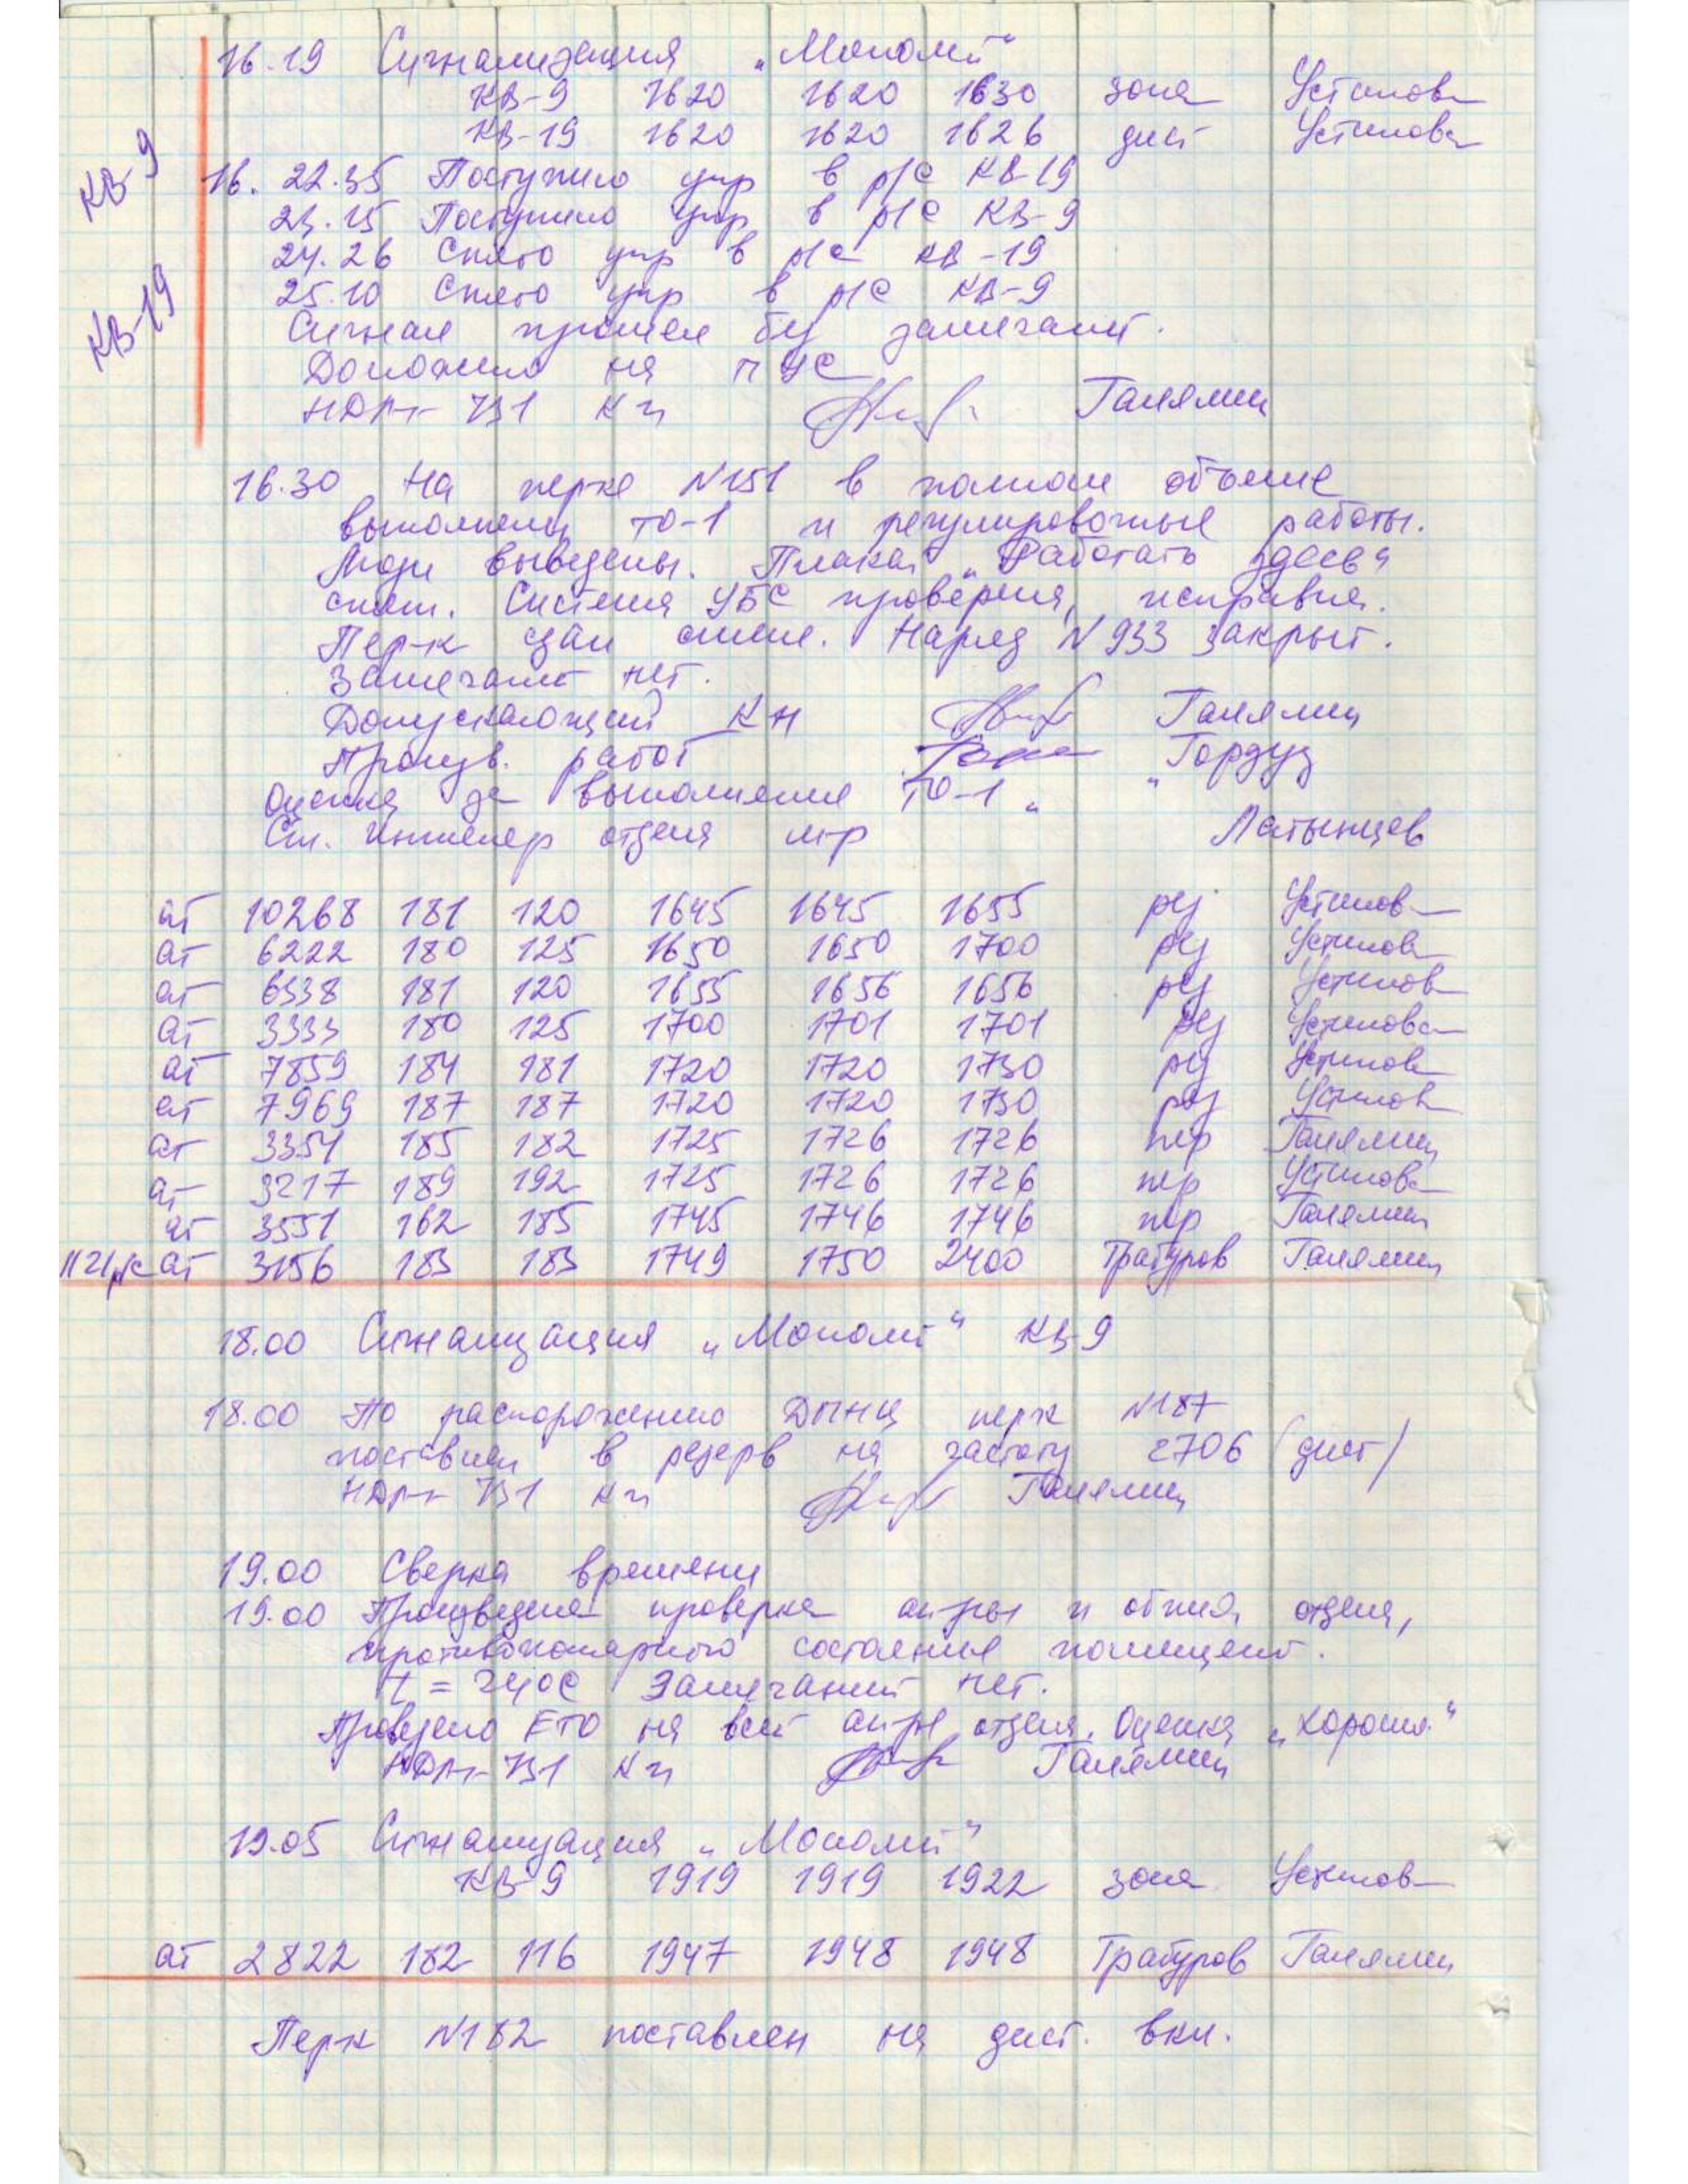 16.19 Сигнализация „Монолит“
КВ-9 1620 1620 1630 зона Устинова
КВ-19 1620 1620 1626 дист Устинова
КВ-9
16. 22.35 Поступило упр в р/с КВ-19
23.15 Поступило упр в р/с КВ-9
24.26 Снято упр в р/с КВ-19
КВ-19
25.10 Снято упр в р/с КВ-9
Сигнал прошел без замечаний.
Доложено на ПУС
КН Галямин
16.30 На перке N151 в полном объеме
выполнены ТО-1 и регулировочные работы.
Люди выведены. Плакат „Работать здесь“
снят. Система УБС проверена, исправна.
Пер-к сдан смене. Наряд N 933 закрыт.
Замечаний нет.
Допускающий КН Галямин
Произв. работ
Оценка за выполнение ТО-1 „ “
Ст. инженер отдел м-р Латынцев
ат 10268 181 120 1645 1645 1655 рез Устинов
ат 6222 180 125 1650 1650 1700 рез Устинов
ат 6338 181 120 1655 1656 1656 рез Устинов
ат 3333 180 125 1700 1701 1701 рез Устинова
ат 7859 184 181 1720 1720 1730 рез Устинов
ат 7969 187 187 1720 1720 1730 рез Устинов
ат 3351 185 182 1725 1726 1726 пер Галямин
ат 3217 189 192 1725 1726 1726 пер Устинова
ат 3551 162 185 1745 1746 1746 пер Галямин
ат 3156 183 183 1749 1750 2400 Трабуров Галямин
18.00 Сигнализация „Монолит“ КВ-9
18.00 По распоряжению ДПНЦ перк N187
поставлен в резерв на частоту 2706 (дист)
КН Галямин
19.00 Сверка времени
19.00 Произведена проверка ап-ры и отдел,
противопожарного состояния помещений.
t = 24°С Замечаний нет.
Проведено ЕТО на всей ап-ре отдел. Оценка „хорошо“
КН Галямин
19.05 Сигнализация „Монолит“
КВ-9 1919 1919 1922 зона Устинов
ат 2822 182 116 1947 1948 1948 Трабуров Галямин
Перк N182 поставлен на дист. вкл.